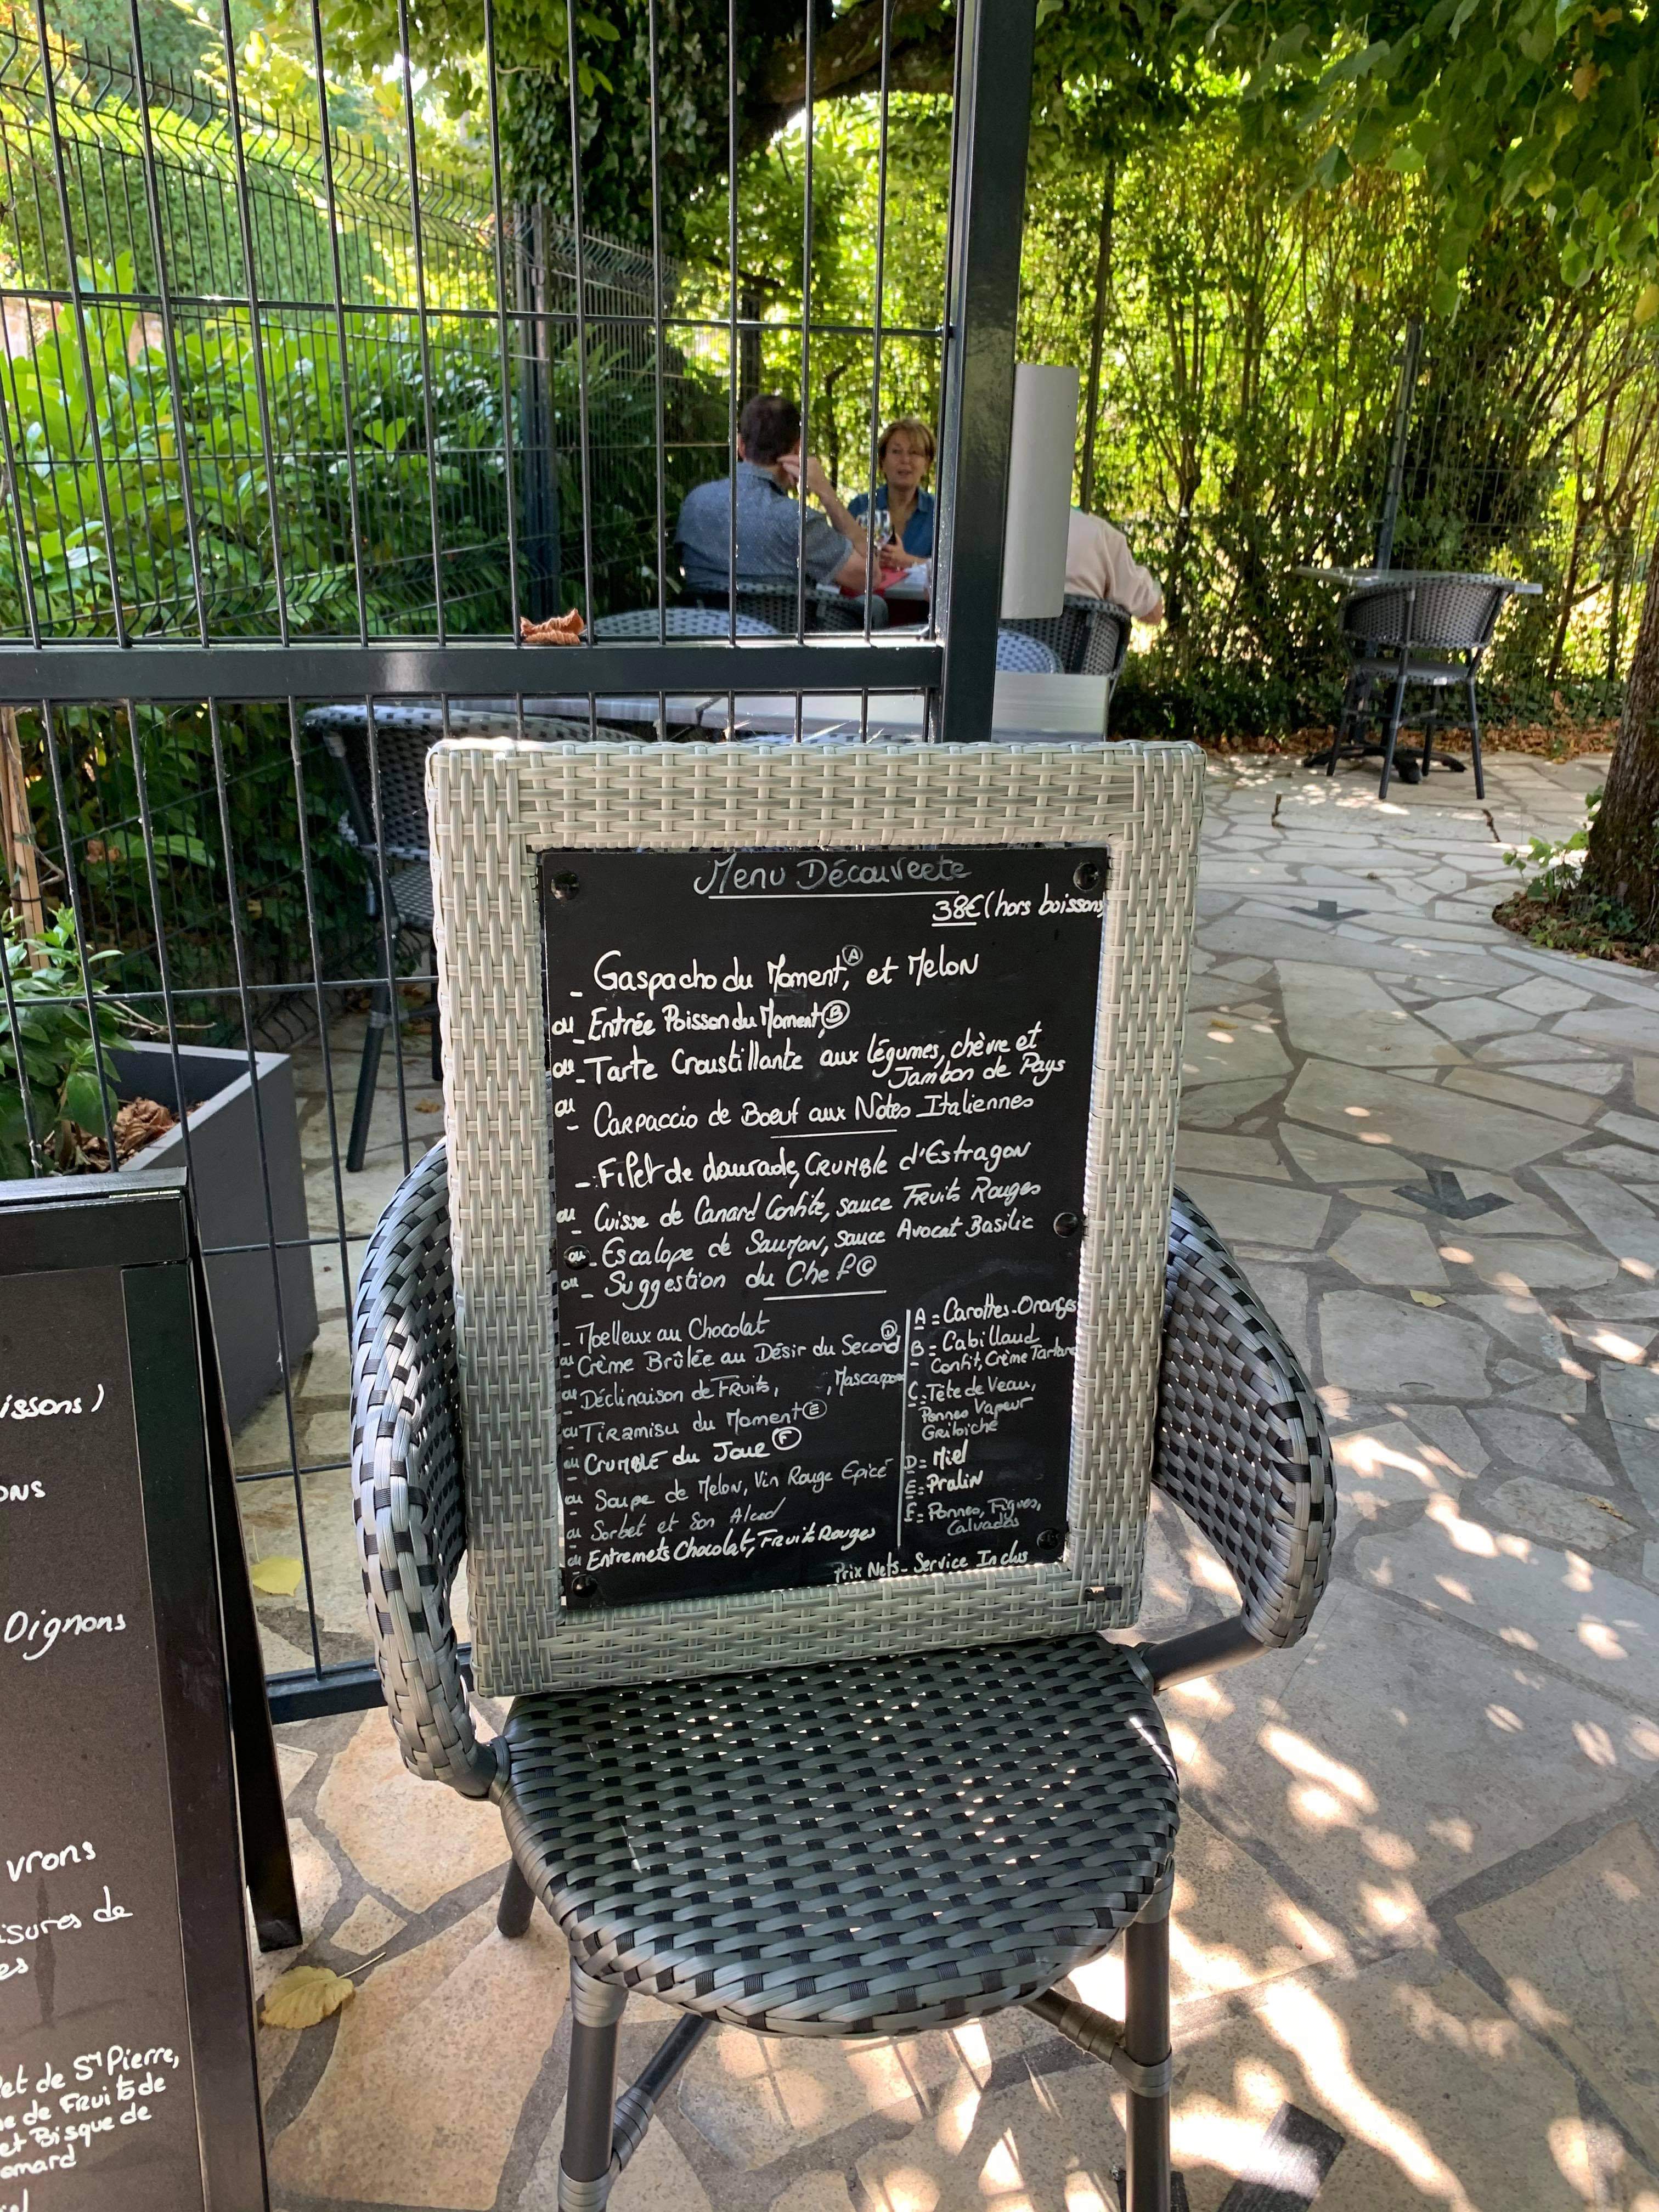 Menu Découverte
38€ (hors boissons)
- Gaspacho du Moment, Ⓐ et Melon
ou - Entrée Poisson du Moment, Ⓑ
ou - Tarte Croustillante aux légumes, chèvre et
Jambon de Pays
ou - Carpaccio de Boeuf aux Notes Italiennes
- Filet de daurade, Crumble d'Estragon
ou - Cuisse de Canard Confite, sauce Fruits Rouges
ou - Escalope de Saumon, sauce Avocat Basilic
ou - Suggestion du Chef Ⓒ
- Moelleux au Chocolat
ou - Crème Brûlée au Désir du Second Ⓓ
ou - Déclinaison de Fruits, , Mascarpone
ou - Tiramisu du Moment Ⓔ
ou - Crumble du Jour Ⓕ
ou - Soupe de Melon, Vin Rouge Epicé
ou - Sorbet et Son Alcool
ou - Entremets Chocolat, Fruits Rouges
A = Carottes-Oranges
B = Cabillaud
Confit, Crème Tartare
C = Tête de Veau,
Pommes Vapeur
Gribiche
D = Miel
E = Pralin
F = Pommes, Figues,
Calvados
Prix Nets - Service Inclus
issons)
ons
Oignons
vrons
isures de
es
let de St Pierre,
ne de Fruits de
et Bisque de
omard
iel